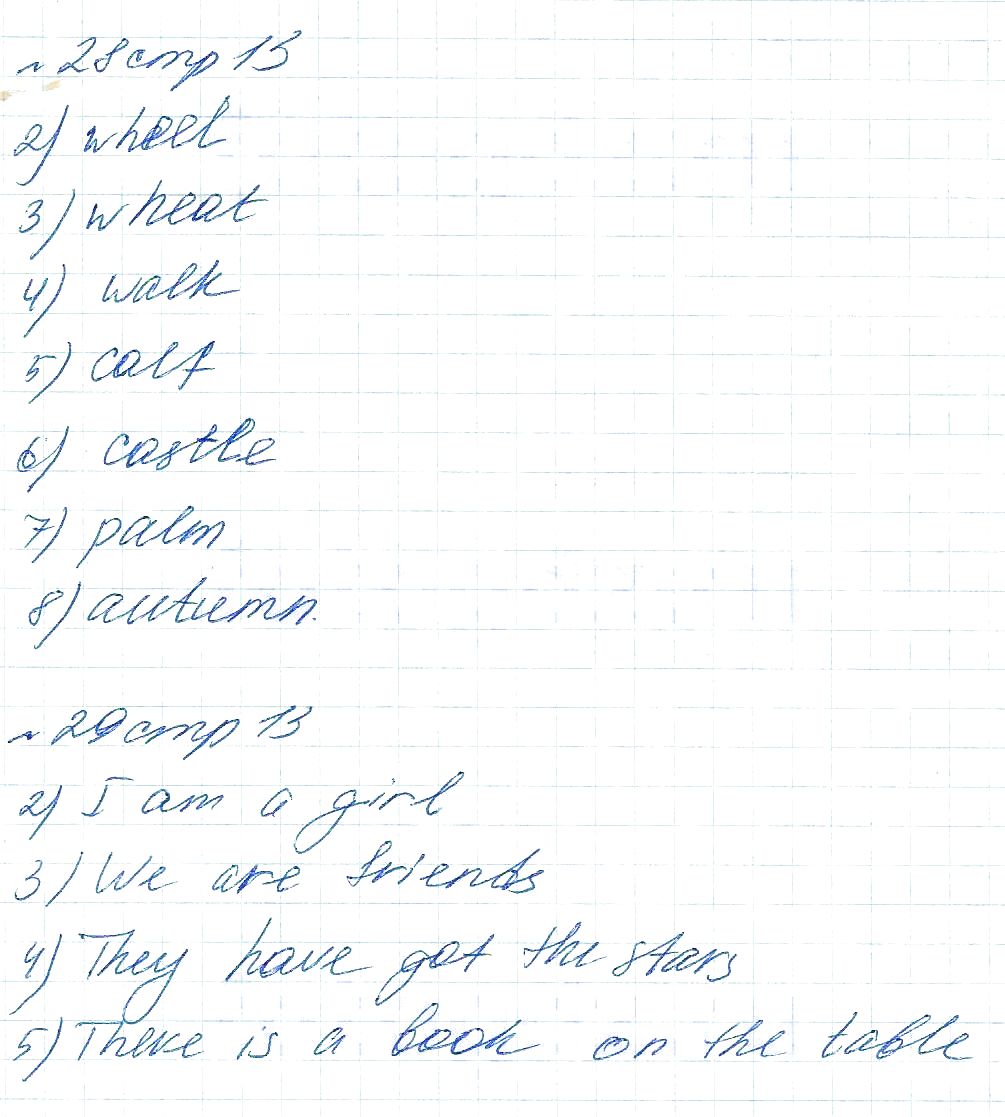 ~ 28 стр 13
2) wheel
3) wheat
4) walk
5) calf
6) castle
7) palm
8) autumn.
~ 29 стр 13
2) I am a girl
3) We are friends
4) They have got the stars
5) There is a book on the table